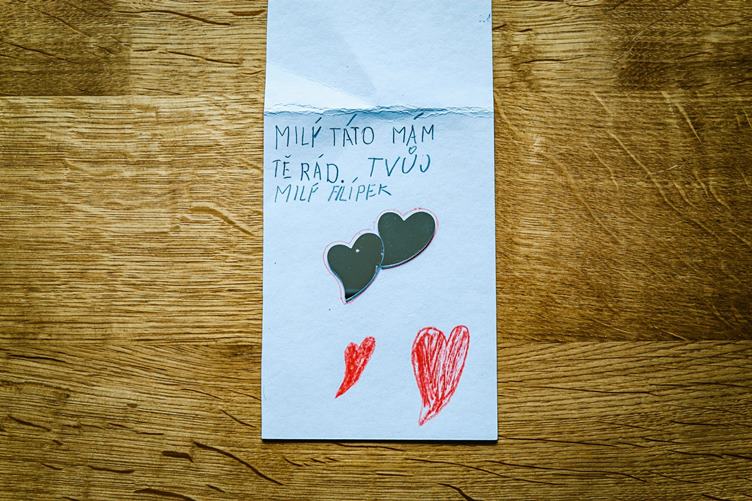 MILÝ TÁTO MÁM
TĚ RÁD. TVŮJ
MILÝ FILÍPEK